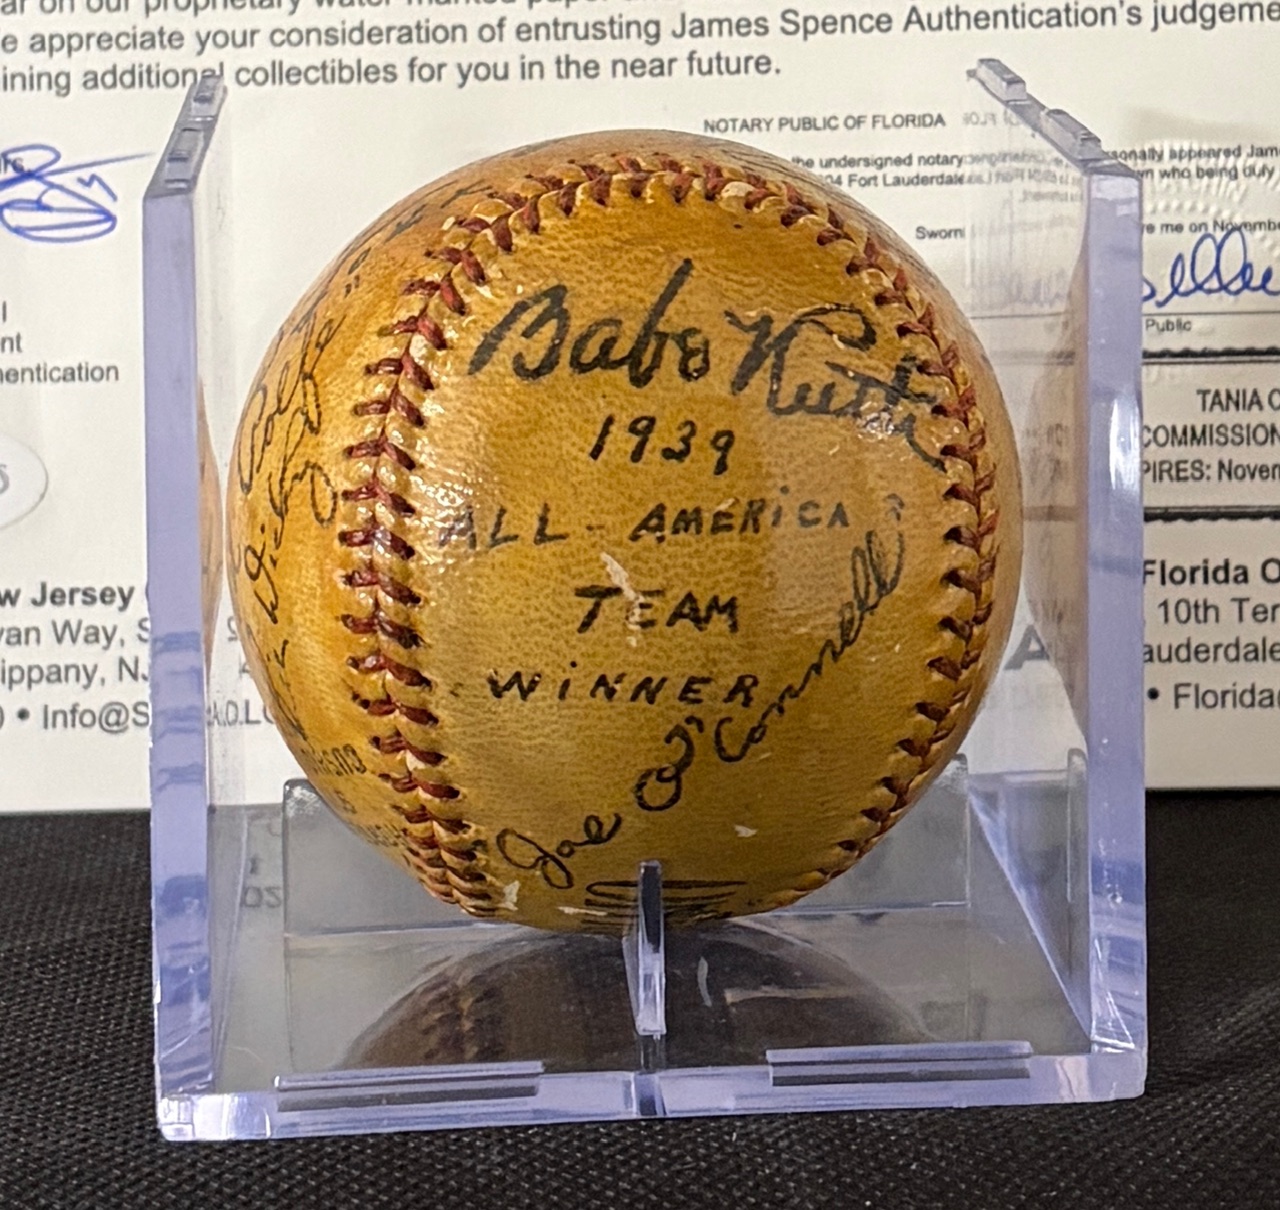 ar on our proprietary water marked paper
e appreciate your consideration of entrusting James Spence Authentication's judgeme
ining additional collectibles for you in the near future.
NOTARY PUBLIC OF FLORIDA
the undersigned notary
sonally appeared Jam
04 Fort Lauderdale
wn who being duly
Sworn
e me on Novemb
Public
nt
entication
TANIA C
COMMISSION
PIRES: Novem
w Jersey
van Way, S
ippany, NJ
• Info@S
Florida O
10th Ter
auderdale
• Florida
Babe Ruth
1939
ALL-AMERICA
TEAM
WINNER
Joe O'Connell